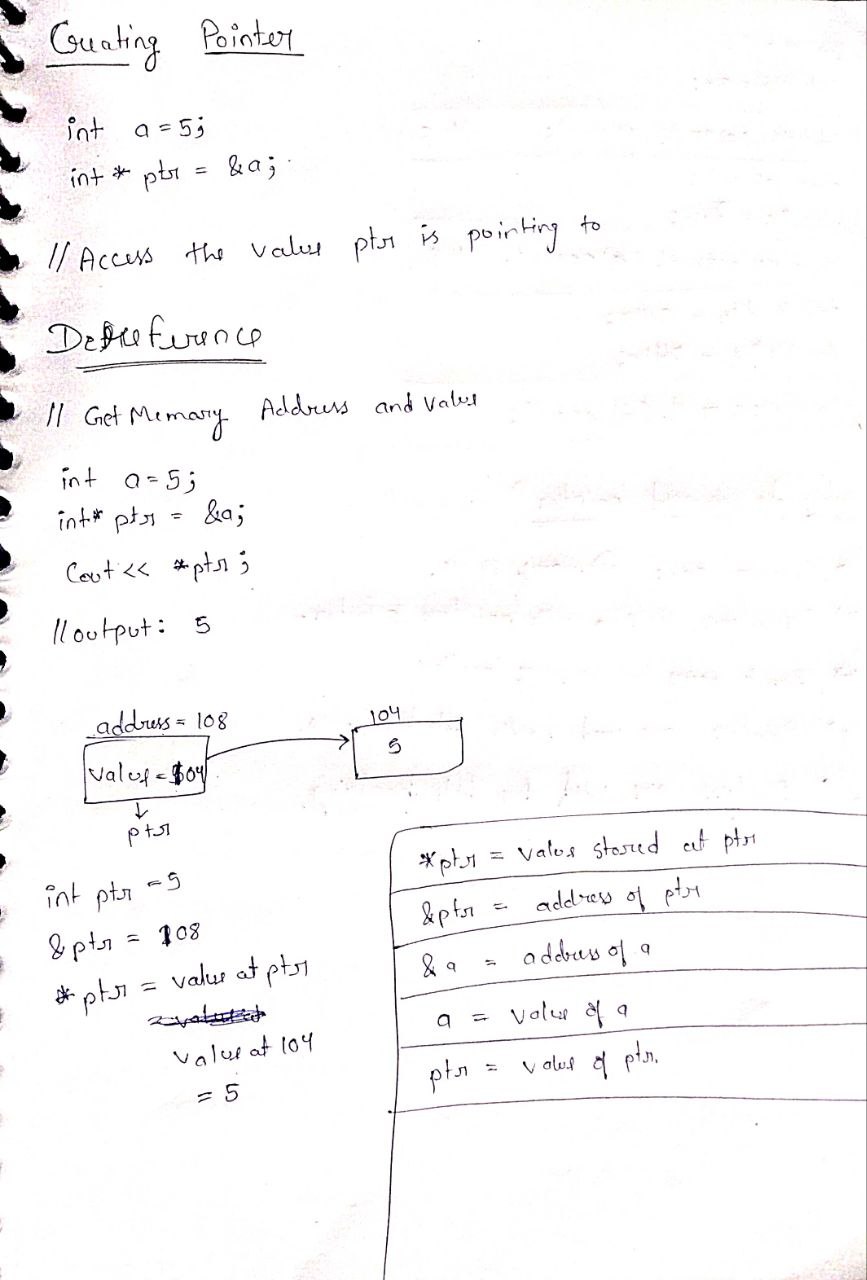 Creating Pointer
int a = 5;
int * ptr = &a;
// Access the value ptr is pointing to
Dereference
// Get Memary Address and value
int a = 5;
int* ptr = &a;
Cout << *ptr;
// output: 5
address = 108
104
value = 104
5
ptr
int ptr = 5
&ptr = 108
* ptr = value at ptr
value at 104
= 5
*ptr = value stored at ptr
&ptr = address of ptr
&a = address of a
a = value of a
ptr = value of ptr.